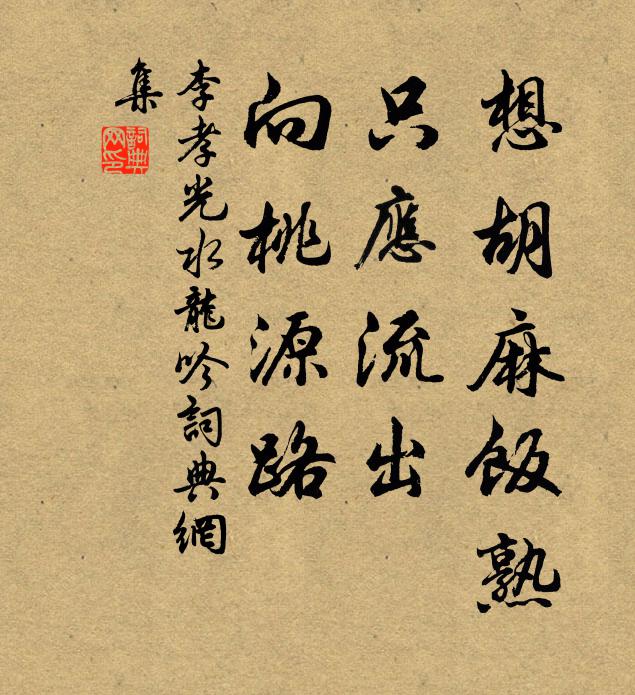 想胡麻飯熟
只應流出
向桃源路
李孝光水龍吟詞典網
集
詞典網印